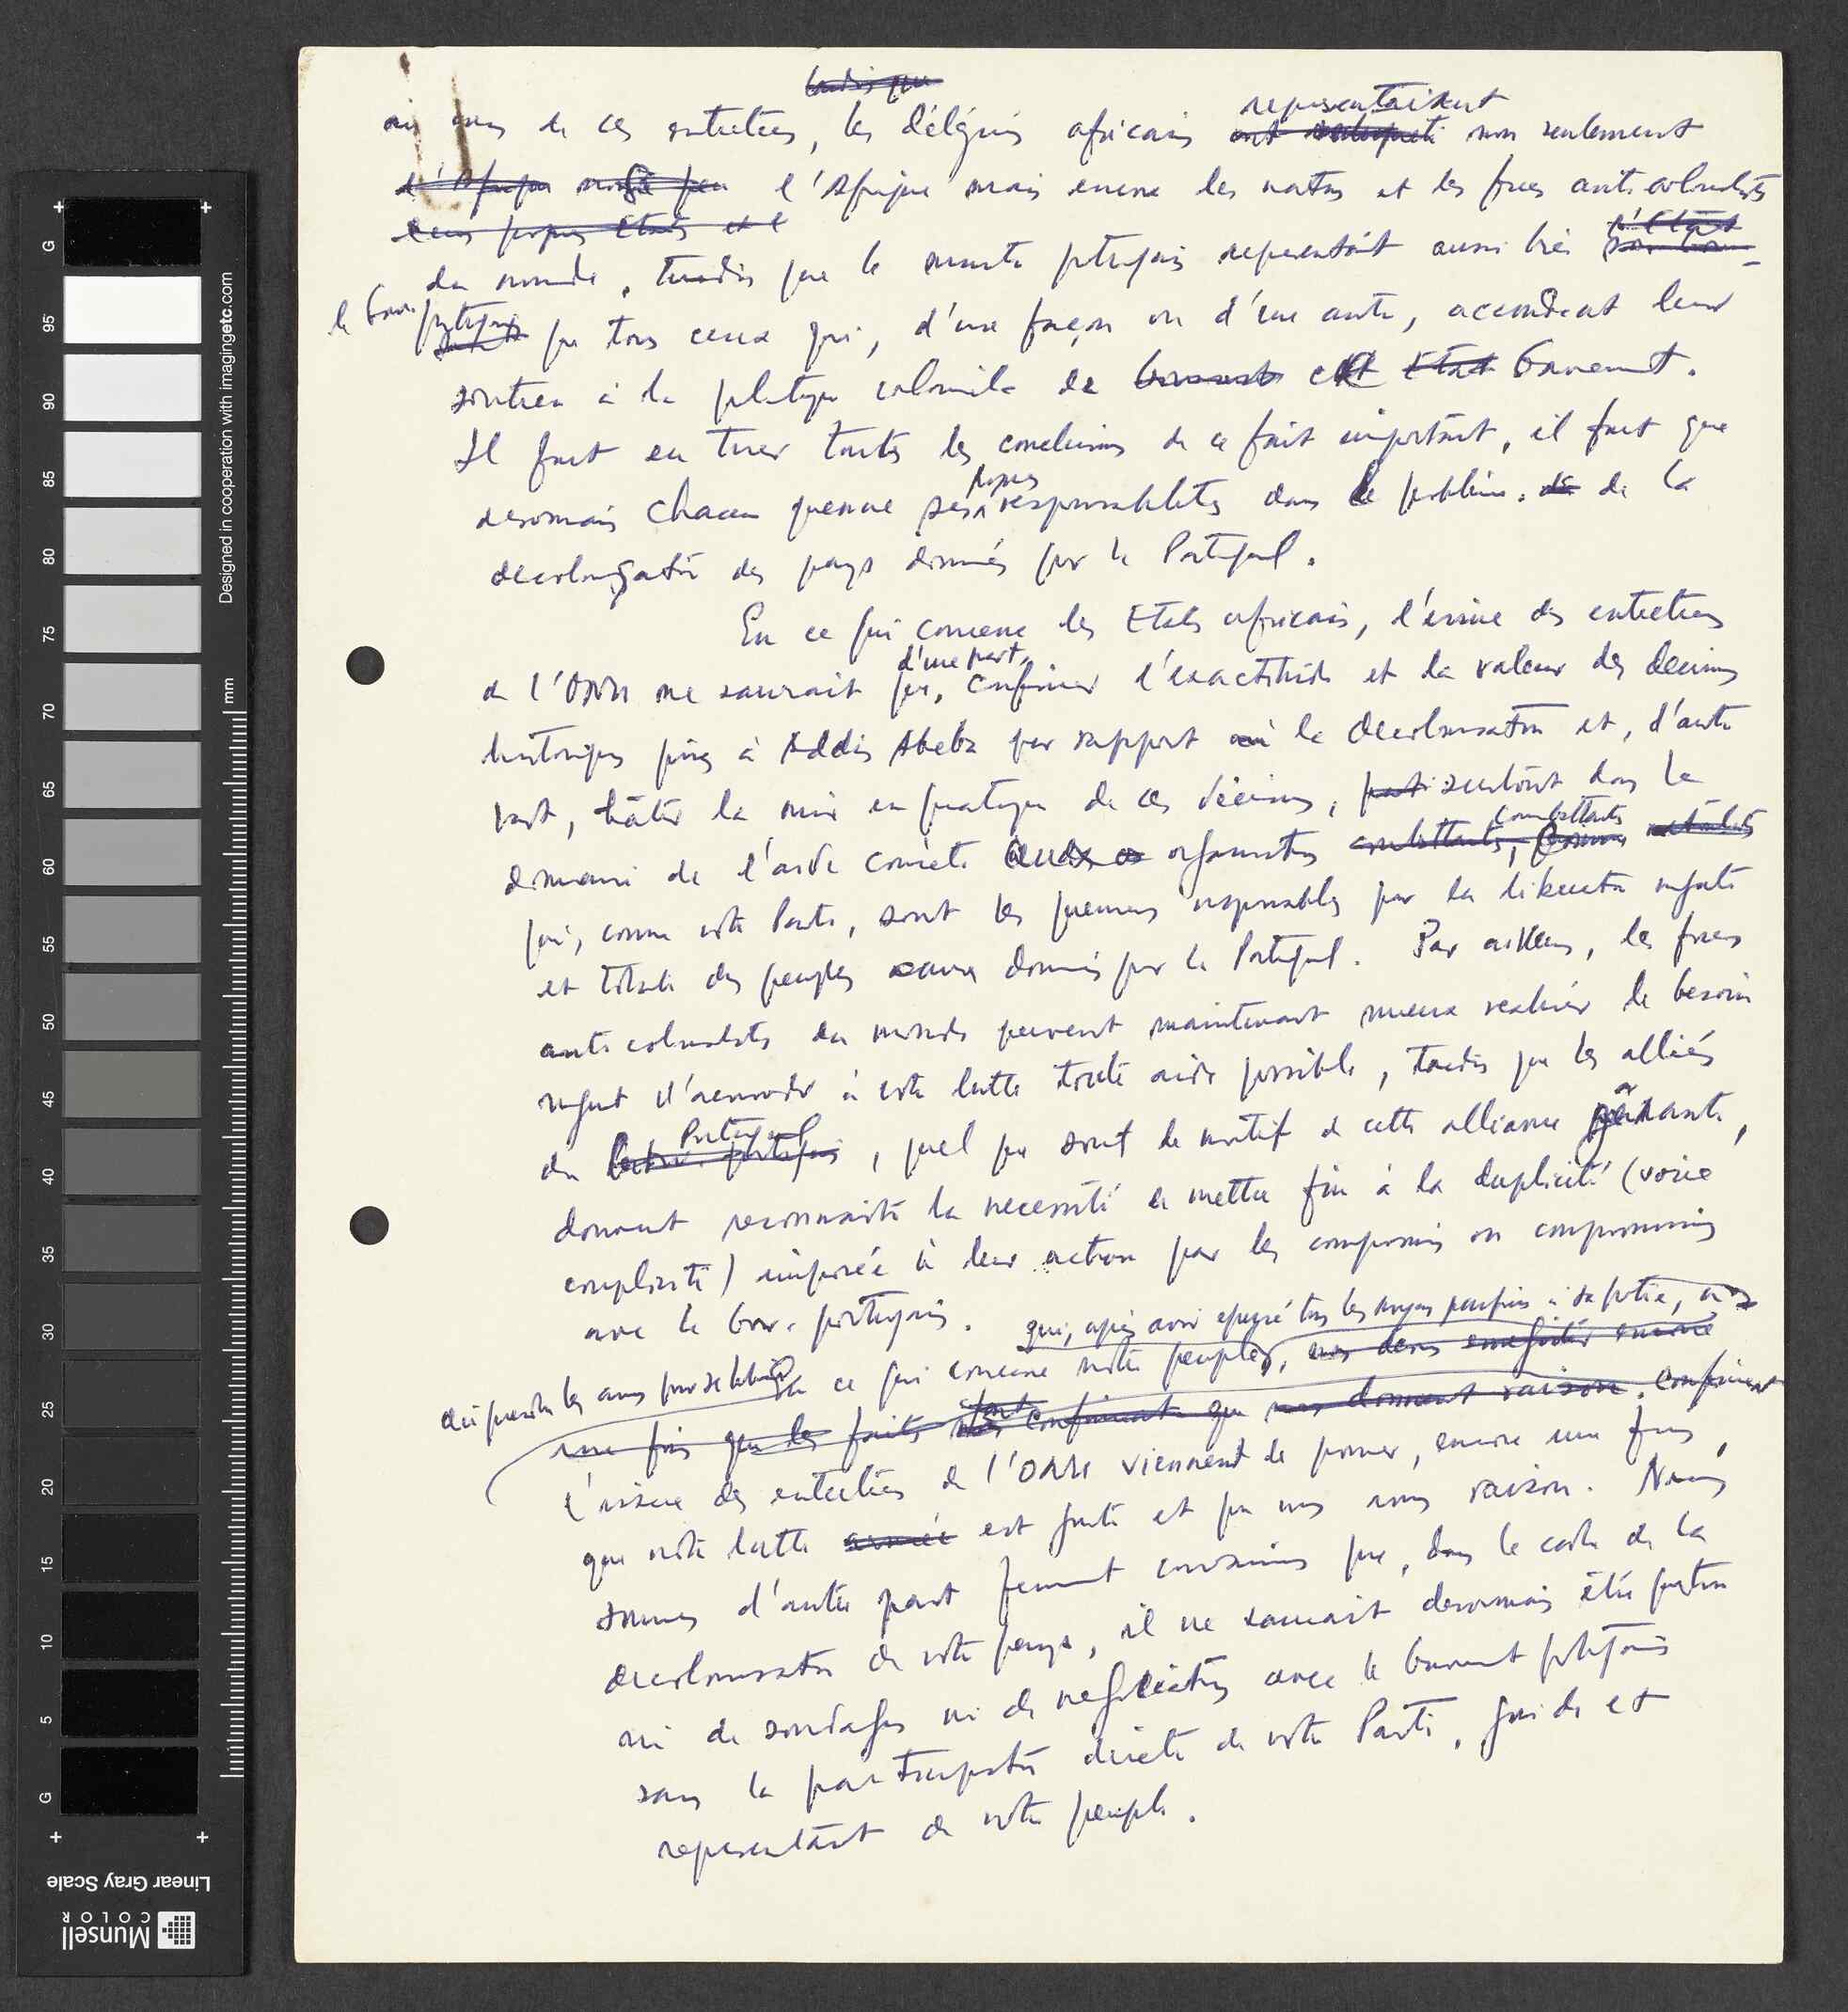 au cours de ces entretiens, les délégués africains representaient non seulement
l'Afrique mais encore les nations et les forces anticolonialistes
du monde, tandis que le ministre portugais representait aussi bien
le Gouv. portugais que tous ceux qui, d'une façon ou d'une autre, accordent leur
soutien à la politique coloniale de ce Gouvernement.
Il faut en tirer toutes les conclusions de ce fait important, il faut que
desormais chacun prenne ses propres responsabilités dans le problème de la
decolonisation des pays dominés par le Portugal.
En ce qui concerne les Etats africains, l'issue des entretiens
de l'ONU ne saurait que, d'une part, confirmer l'exactitude et la valeur des decisions
historiques prises à Addis Abeba par rapport à la decolonisation et, d'autre
part, hâter la mise en pratique de ces décisions, surtout dans le
domaine de l'aide concrète aux organisations combattantes
qui, comme notre Parti, sont les premiers responsables par la liberation urgente
et totale des peuples dominés par le Portugal. Par ailleurs, les forces
anticolonialistes du monde peuvent maintenant mieux realiser le besoin
urgent d'accorder à notre lutte toute aide possible, tandis que les alliés
du Portugal, quel que soit le motif de cette alliance gênante,
doivent reconnaitre la necessité de mettre fin à la duplicité (voire
complicité) imposée à leur action par les compromis ou compromissions
avec le Gouv. portugais.
En ce qui concerne notre peuple, qui, après avoir epuisé tous les moyens pacifiques à sa portée, a
dû prendre les armes pour se liberer, confirment
l'issue des entretiens de l'ONU viennent de prouver, encore une fois,
que notre lutte est juste et que nous avons raison. Nous
sommes d'autre part fermement convaincus que, dans le cadre de la
decolonisation de notre pays, il ne saurait desormais être question
ni de sondages ni de negociations avec le Gouvernement portugais
sans la participation directe de notre Parti, guide et
representant de notre peuple.
Designed in cooperation with imagingetc.com
mm
G
95
90
85
80
75
70
65
60
55
50
45
40
35
30
25
20
15
10
5
G
Linear Gray Scale
Munsell
COLOR